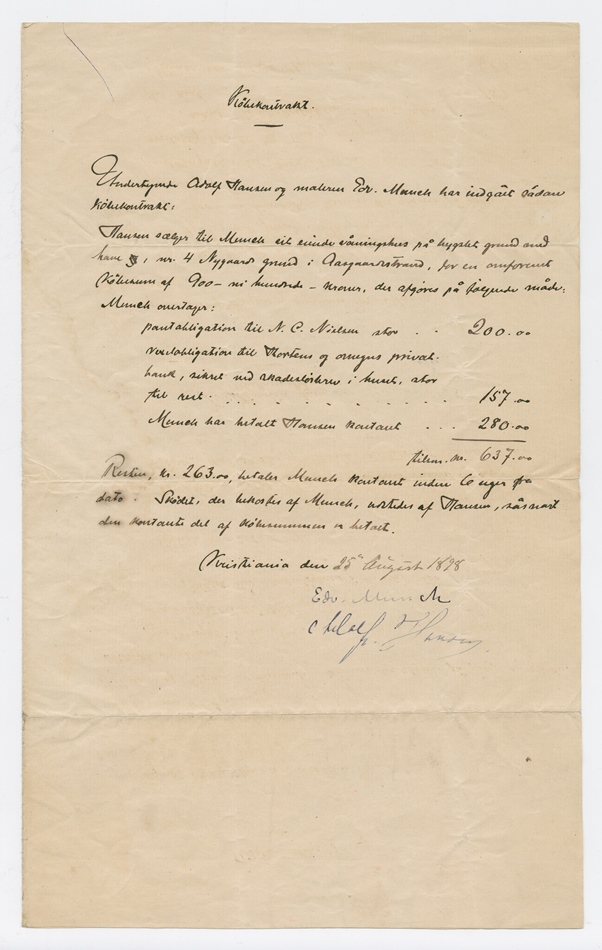 Köbekontrakt.
Undertegnede Adolf Hansen og maleren Edv. Munch har indgåt sådan
köbekontrakt:
Hansen sælger til Munch sit eiende våningshus på bygslet grund med
have, nr. 4 Nygaards grund i Aasgaardstrand, for en omforenet
köbesum af 900 - ni hundrede - kroner, der afgjöres på fölgende måde:
Munch overtager:
pantobligation til N. C. Nielsen stor . . 200.00
vexelobligation til Hortens og omegns privat-
bank, sikret ved skadeslösbrev i huset, stor
til rest . . . . . . . . . 157.00
Munch har betalt Hansen kontant . . . 280.00
tilsm. kr. 637.00
Resten, kr. 263.00, betaler Munch kontant inden 6 uger fra
dato. Sködet, der bekostes af Munch, udstedes af Hansen, såsnart
den kontante del af köbesummen er betalt.
Kristiania den 25de August 1898
Edv. Munch
Adolf. Hansen.